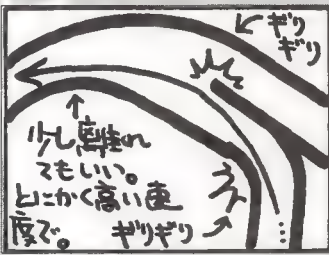 ギリ
ギリ
少し離れ
てもいい。
とにかく高い速
度で。
ギリギリ